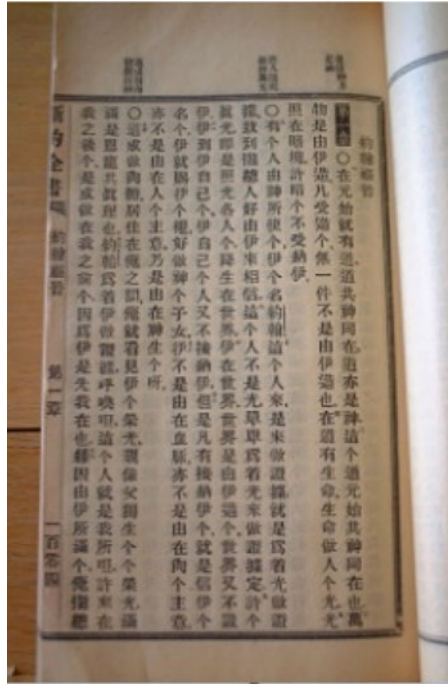 約翰福音
第一章 〇在元始就有道道共神同在道亦是神這個道元始共神同在也萬
物是由伊造凡受造个無一件不是由伊造也在道有生命生命做人个光光
照在暗塊許暗个不受納伊
〇有个人由神所使个伊个名約翰這个人來是來做證據就是爲着光做證
據致到衆人好由伊來相信這个人不是光單單爲着光來做證據定許个
眞光即是照光各人个降生在世界伊在世界世界是由伊造个世界又不識
伊伊到伊自己个伊自己个人又不接納伊但是凡有接納伊个就是信伊个
名个伊就賜伊个權好做神个子女伊不是由在血脈亦不是由在肉个主意
亦不是由在人个主意乃是由在神生个呀
〇道成做肉體居住在俺之間俺就看見伊个榮光親像父獨生个个榮光滿
滿是恩寵共眞理也約翰爲着伊做證據呼喚呾這个人就是我所呾許來在
我之後个是成做在我之前个因爲伊是先我在也因由伊所滿个俺攏總
新約全書 約翰福音 第一章 一百零四